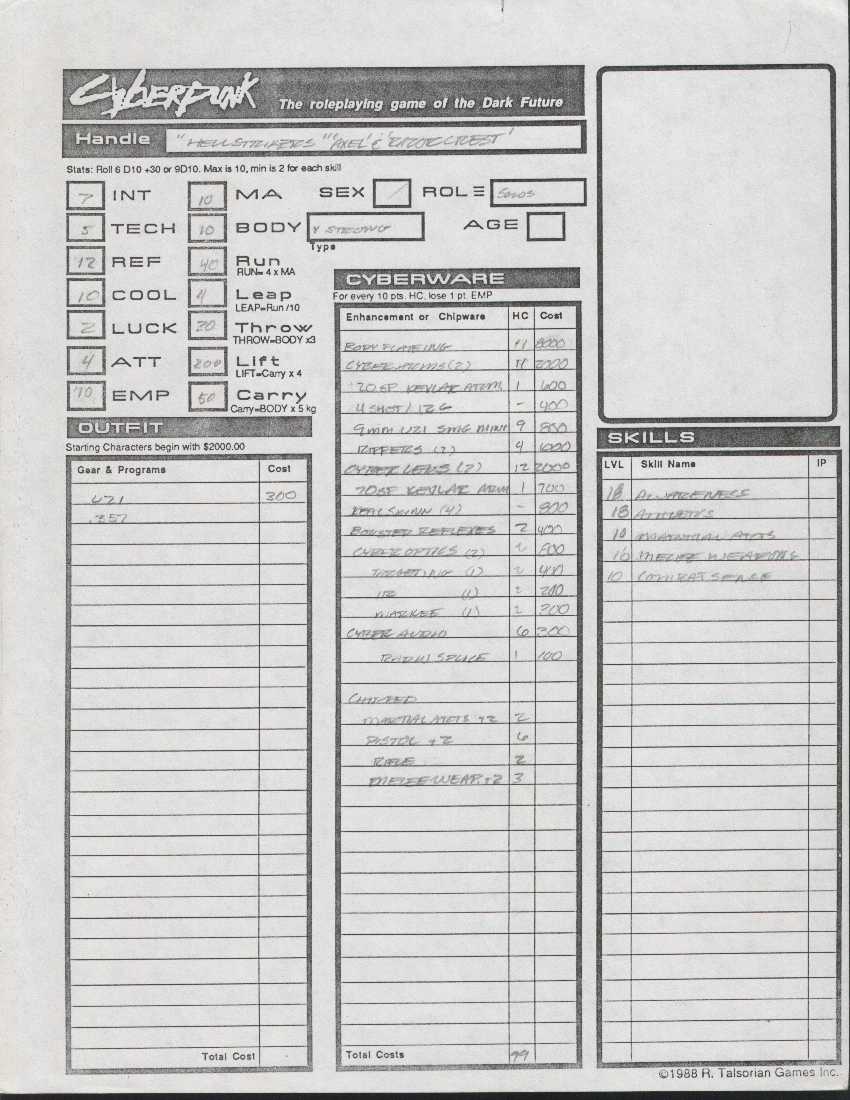 CYBERPUNK The roleplaying game of the Dark Future
Handle "HELLSTRIKERS" "AXEL' & 'RAZORCREST'
Stats: Roll 6 D10 +30 or 9D10. Max is 10, min is 2 for each skill
7 INT 10 MA SEX / ROLE SOLOS
5 TECH 10 BODY V STRONG AGE
Type
12 REF 40 Run
RUN= 4 x MA
10 COOL 4 Leap
LEAP=Run /10
2 LUCK 30 Throw
THROW=BODY x3
4 ATT 200 Lift
LIFT=Carry x 4
10 EMP 50 Carry
Carry=BODY x 5 kg
OUTFIT
Starting Characters begin with $2000.00
Gear & Programs Cost
UZI 300
.357
Total Cost
CYBERWARE
For every 10 pts. HC, lose 1 pt. EMP
Enhancement or Chipware HC Cost
BODY PLATEING 8000
CYBER ARMS (2)
20 SP KEVLAR ARM 1 600
4 SHOT / 12 G - 400
9MM UZI SMG MINI 9 800
RIPPERS (2) 4
CYBER LEGS (2) 12 2000
20 SP KEVLAR ARM 1 700
REAL SKINN (4) - 800
BOOSTED REFLEXES 2 400
CYBER OPTICS (2) 2
TARGETING (1) 2 400
IR (1) 2 200
(1) 2 200
CYBER AUDIO 6 300
RADIO SPLICE 1 100
CHIPPED
MARTIAL ARTS +2 2
PISTOL +2 6
RIFLE 2
MELEE WEAP. +2 3
Total Costs 99
SKILLS
LVL Skill Name IP
18 AWARENESS
18 ATHLETICS
10 MARTIAL ARTS
10 MELEE WEAPONS
10 COMBAT SENSE
©1988 R. Talsorian Games Inc.